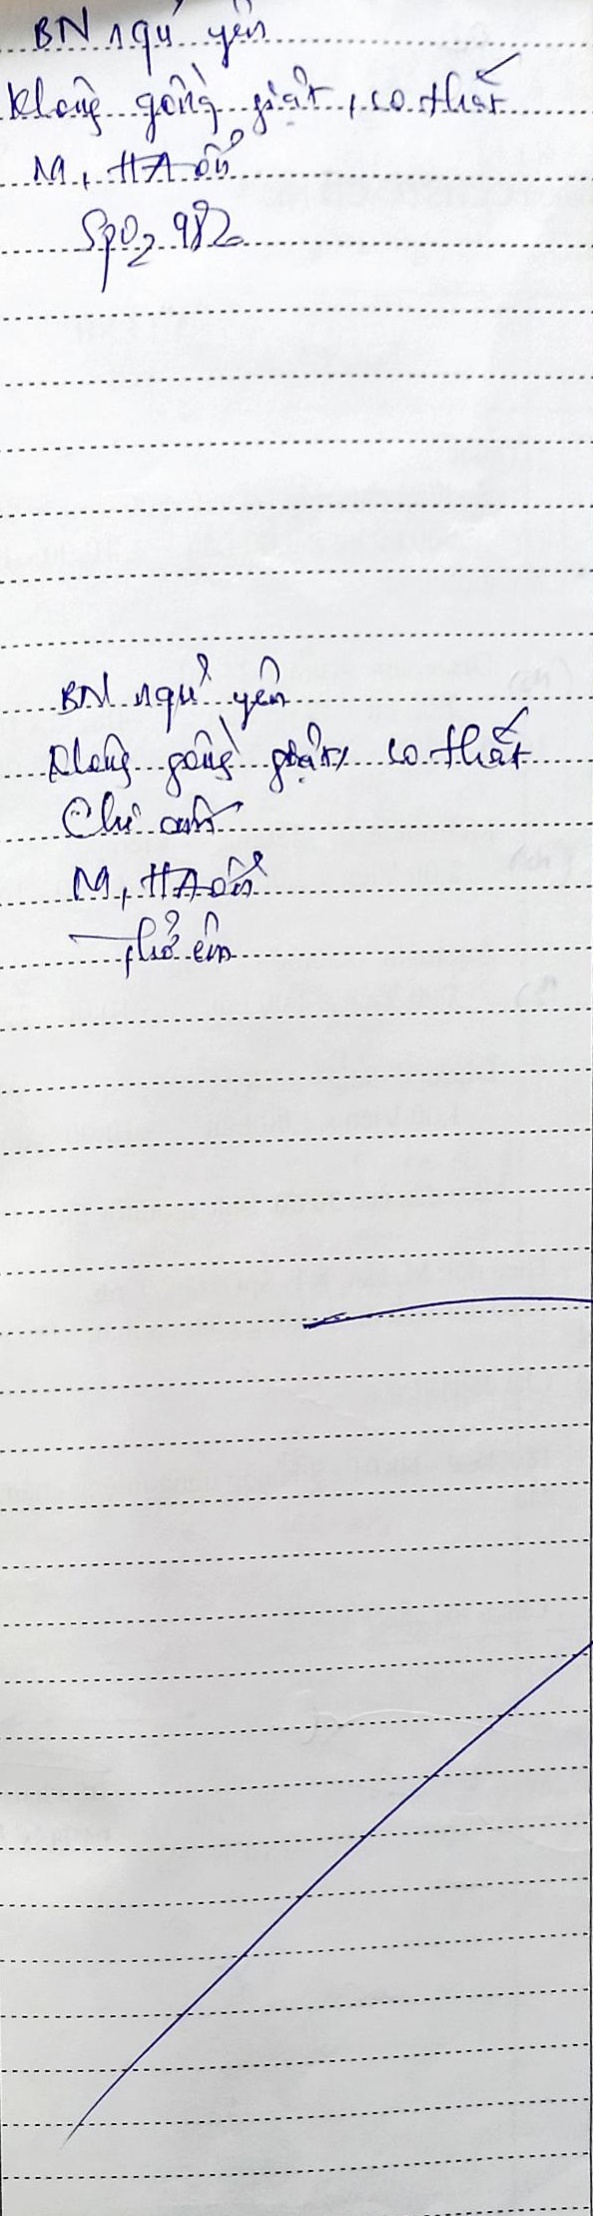 BN ngủ yên
Không gồng giật, co thắt
M, HA ổn
SpO2 98%
BN ngủ yên
Không gồng giật, co thắt
Chi ấm
M, HA ổn
Thở êm